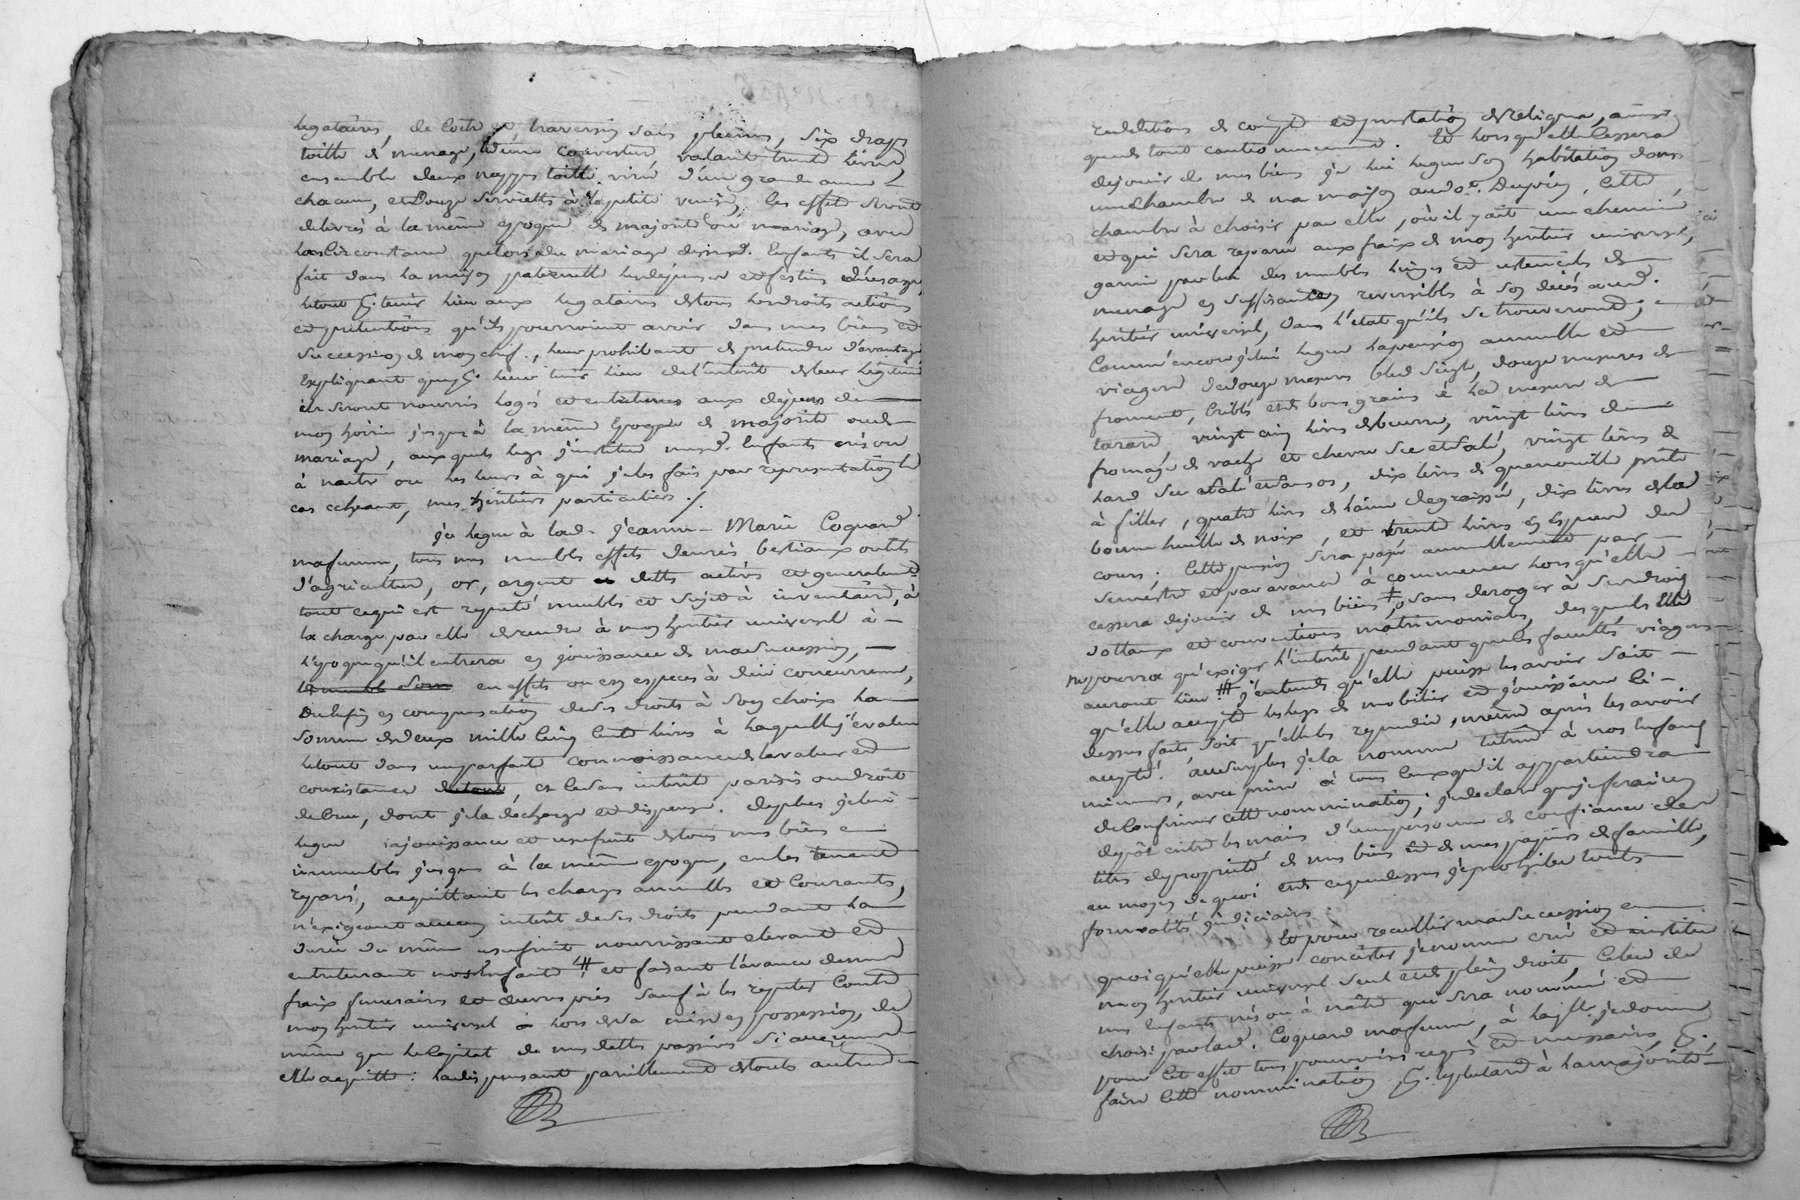 legataires, de Coitre et, traversin sans plumes, Six draps
toille de menage, et une couverture, valant trente livres
ensemble deux nappes toille d'une grande aune
chacune, et Douze Serviettes à la petite venise, les effets seront
delivrés à la même epoque de majorité ou mariage, avec
la Circonstance que lors du mariage desd. Enfants il Sera
fait dans la maison paternelle les dejeuner et festins d'usage,
le tout p. tenir lieu aux legataires de tous les droits actions
et prétentions qu'ils pourroient avoir dans mes biens et
Succession de mon chef, leur prohibant de pretendre d'avantage
Expliquant que p. leur tenir lieu de l'interêt de leur legitime
ils Seront nourris logés et entretenus aux dépens de
mon hoirie jusqu'à la même Epoque de majorité ou de
mariage, auxquels legs j'institue mesd. Enfants nés ou
à naitre ou les leurs à qui je les fais par représentation le
cas echeant, mes héritiers particuliers ./.
je legue à lad. Jeanne Marie Coquard
ma femme, tous mes meubles effets denrées bestiaux outils
d'agriculture, or, argent dettes actives et generalement
tout ce qui est reputé meuble et Sujet à inventaire, à
la charge par elle de rendre à mon heritier universel à
l'epoque qu'il entrera en jouissance de ma Succession,
en effets ou en especes à due concurrence,
en compensation de ses droits à Son choix la
Somme de deux mille Cinq Cents livres à laquelle j'evalue
le tout dans une parfaite connoissance de la valeur et
consistance, et ce sans interêt parisis ou droit
de Crue, dont je la décharge et dispense. de plus je lui
legue la jouissance et usufruit de tous mes biens
immeubles jusques à la même epoque, en les tenant
reparés, acquittant les charges annuelles et Courantes,
n'exigeant aucun interêt de ses droits pendant la
durée du même usufruit nourrissant elevant et
entretenant nos Enfants # et faisant l'avance de mes
fraix funeraires et œuvres pies Sauf à les repeter Contre
mon heritier universel lors de sa mise en possession, de
même que le Capital de mes dettes passives Si aucunes
elle acquitte : la dispensant pareillement de toute autre
redditions de compte et prestation de reliqua, ainsi
que de tout cautionnement. Et lorsqu'elle Cessera
de jouir de mes biens je lui legue Son habitation dans
une Chambre de ma maison aud. Cette
chambre à choisir par elle, où il y ait une cheminée
et qui Sera reparée aux fraix de mon heritier universel,
garnie par lui des meubles linges et ustensiles de
menage en Suffisance reversibles à Son décès aud.
heritier universel, dans l'état qu'ils se trouveront;
Comme encore je lui legue la pension annuelle et
viagere de douze mesures bled Seigle, douze mesures de
froment, Criblés et de bons grains à la mesure de
tarare, vingt cinq livres de beurre, vingt livres de
fromage de vache et chevre Sec et Salé, vingt livres de
lard Sec et Salé et Sans os, dix livres de quenouille prete
à filler, quatre livres de laine degraissée, dix livres de la
bonne huille de noix, et trente livres en Especes de
cours; Cette pension Sera payée annuellement par
Semestre et par avance à commencer lorsqu'elle
cessera de jouir de mes biens, # Sans deroger à Ses droits
dottaux et conventions matrimoniales, desquels elle
ne pourra qu'exiger l'interêt pendant que les facultés viageres
auront lieu # j'entends qu'elle puisse les avoir Soit
qu'elle accepte les legs de mobilier et jouissance Ci-
dessus faits, Soit qu'elle les repudie, même après les avoir
accepté. au surplus je la nomme tutrice à nos Enfants
mineurs, avec priere à tous Ceux qu'il appartiendra
de Confirmer cette nomination; je declare que je ferai un
depôt entre les mains d'une personne de confiance des
titres de propriété de mes biens et de mes papiers de famille,
au moyen de quoi et de ce que dessus je prohibe toutes
formalités judiciaires.
Et pour recueillir ma Succession en
quoi qu'elle puisse consister je nomme crée et institue
mon heritier universel Seul et de plein droit Celui de
mes Enfants nés ou à naître qui Sera nommé et
choisi par lad. Coquard ma femme, à laquelle je donne
pour Cet effet tous pouvoirs requis et necessaires, p.
faire Cette nomination p. le plutard à la majorité